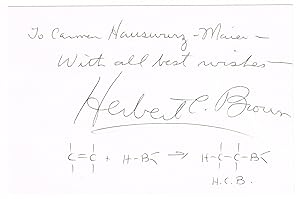 To Carmen Hauswurz-Maier –
With all best wishes –
Herbert C. Brown
C=C + H-B< → H-C-C-B<
H.C.B.